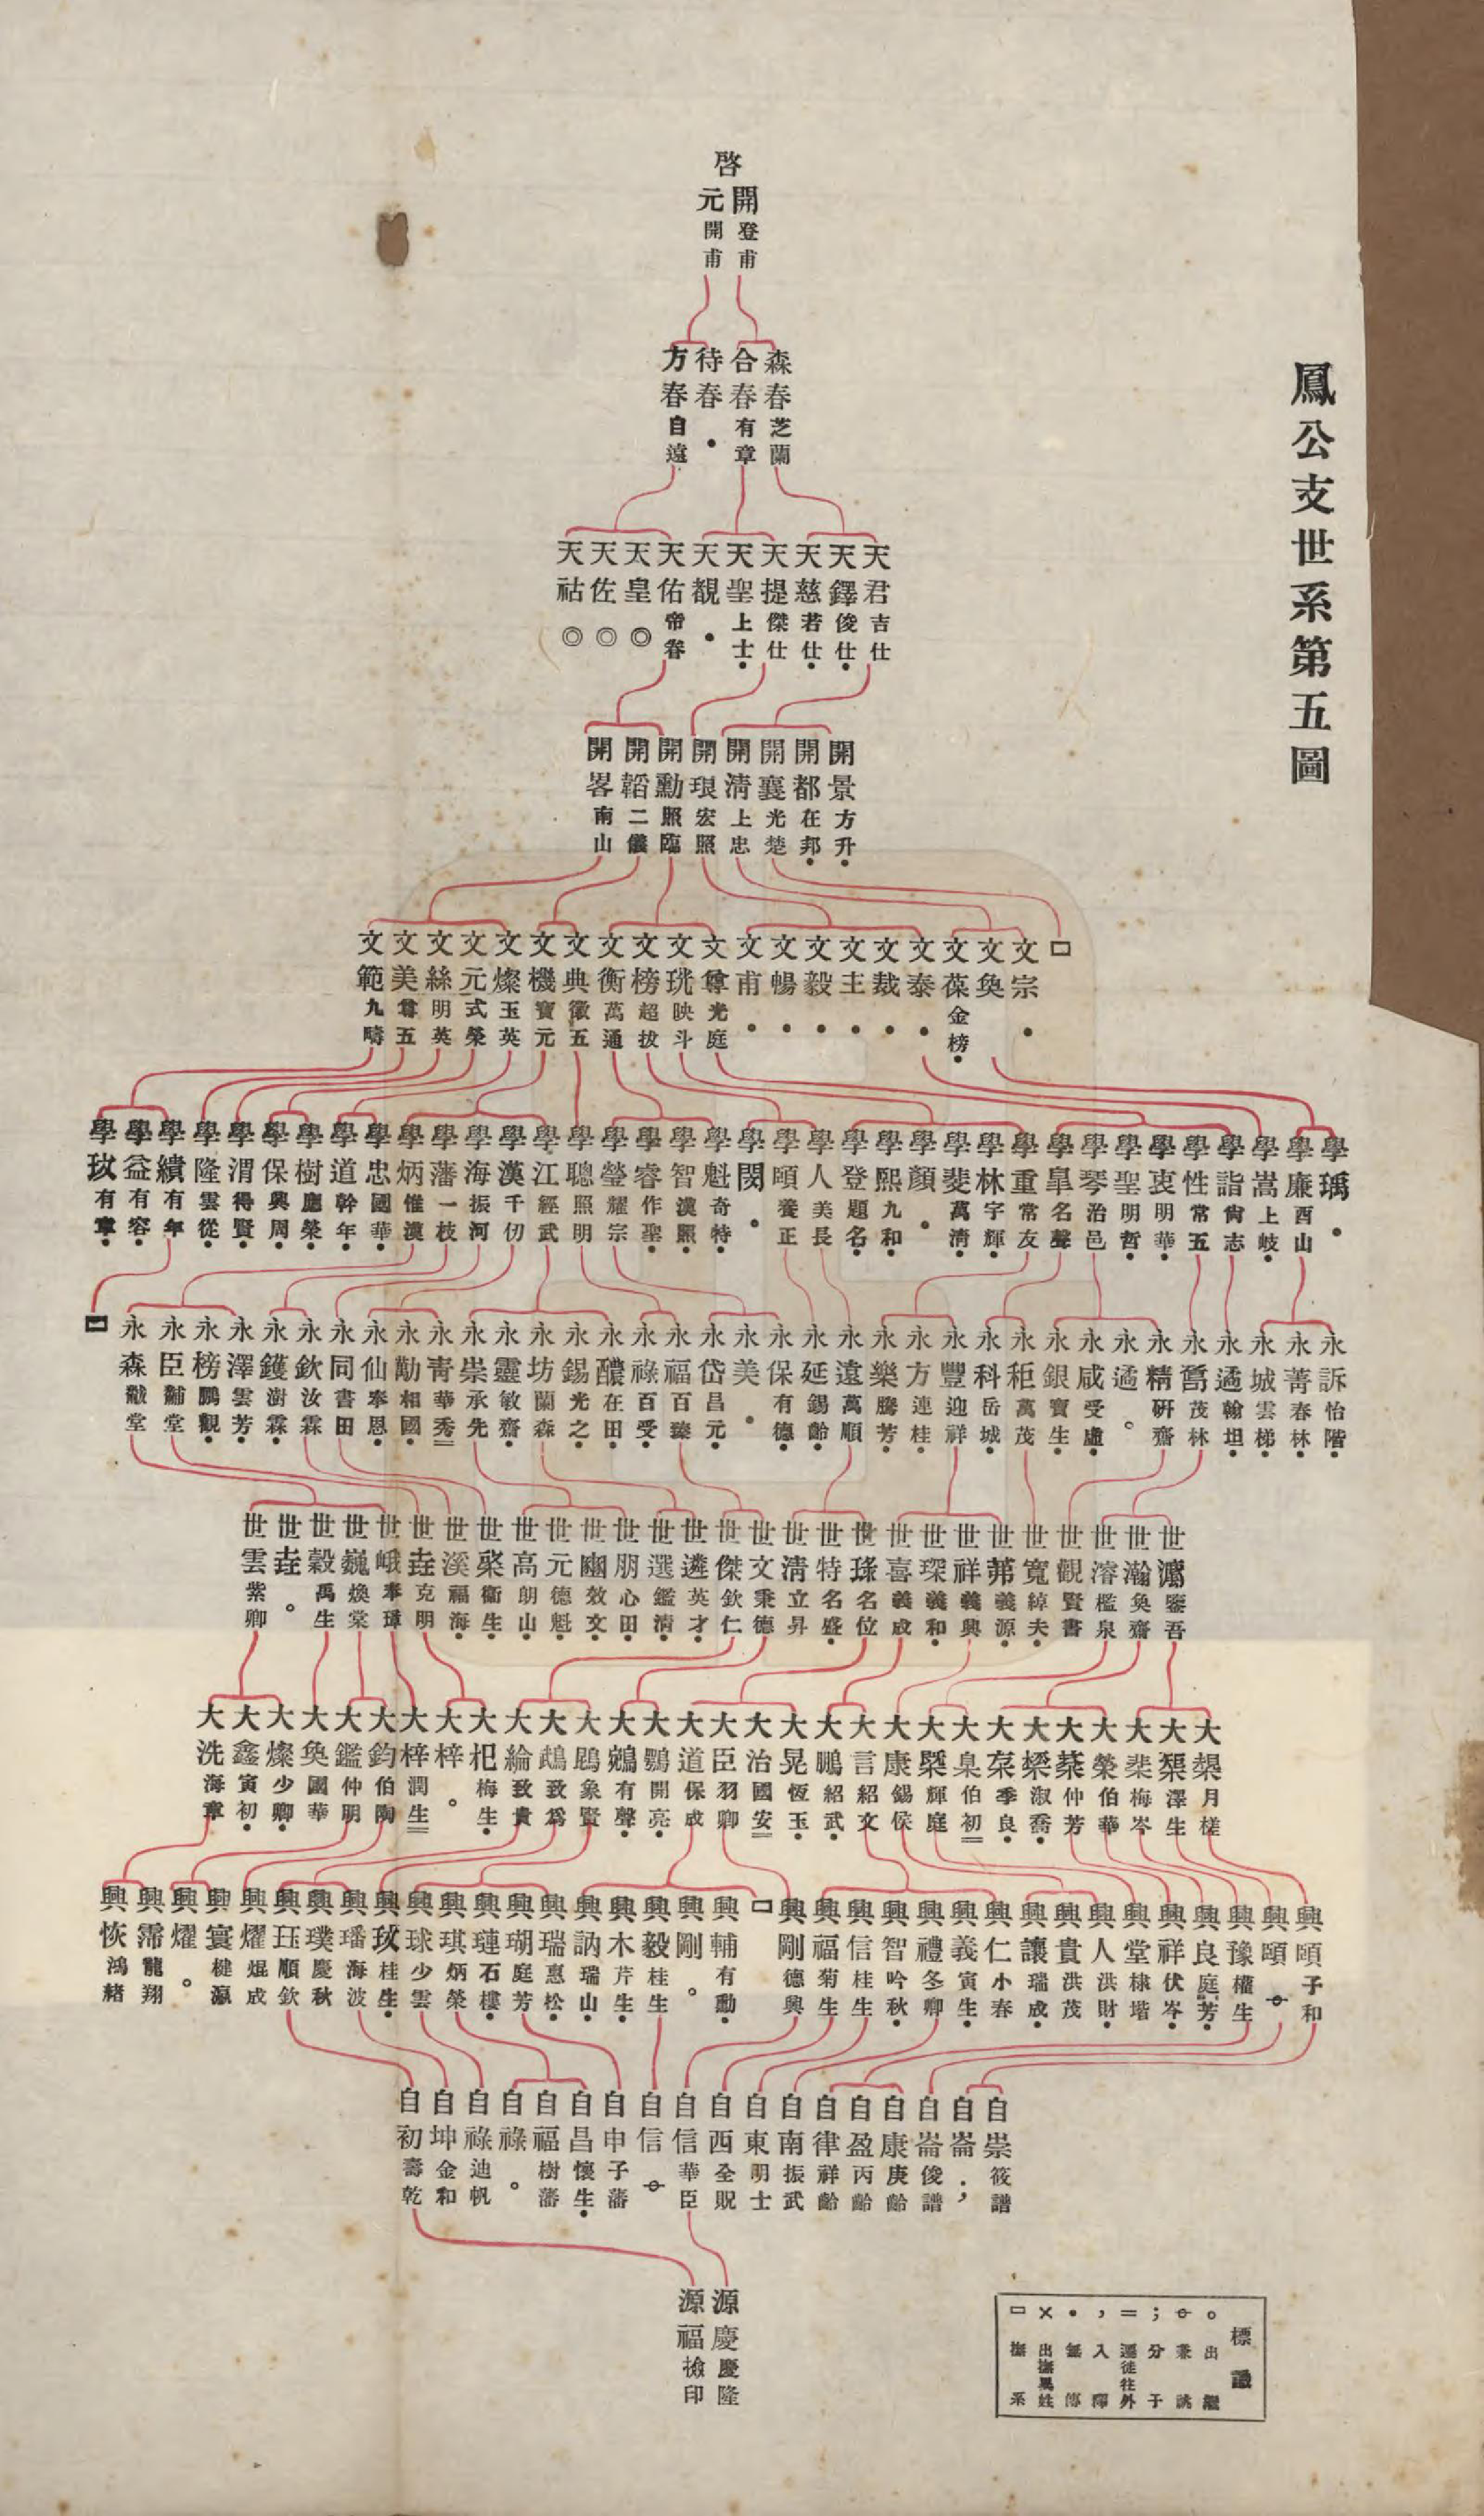 鳳公支世系第五圖
啓
開 登甫
元 開甫
森春 芝蘭
合春 有章
待春 •
方春 自遠
天君 吉仕
天鐸 俊仕 •
天慈 若仕 •
天提 傑仕
天聖 上士 •
天覩 •
天佑 帝眷
天皇 ◎
天佐 ◎
天祜 ◎
開景 方升 •
開都 在邦 •
開襄 光楚
開清 上忠
開琅 宏照
開勳 照臨
開韜 二儀
開畧 南山
文宗 •
文奐
文葆 金榜 •
文泰 •
文裁 •
文主 •
文毅 •
文暢 •
文甫 •
文尊 光庭
文珖 映斗
文榜 超拔
文衡 萬通
文典 徽五
文機 寶元
文燦 玉英
文元 式榮
文絲 明英
文美 尊五
文範 九疇
學瑀 •
學廉 酉山
學嵩 上岐 •
學詣 尙志
學性 常五
學衷 明華 •
學聖 明哲 •
學琴 治邑
學皐 名聲
學重 常友
學林 宇輝 •
學斐 萬清 •
學顏 •
學熙 九和 •
學登 題名 •
學人 美長
學頤 養正
學閔 •
學魁 奇特 •
學智 漢照 •
學睿 作聖 •
學瑩 耀宗
學聰 照明
學江 經武
學漢 千仞
學海 振河
學藩 一枝
學炳 惟漢
學忠 國華 •
學道 幹年 •
學樹 應榮 •
學保 興周 •
學渭 得賢 •
學隆 雲從 •
學纘 有年
學益 有容 •
學玫 有章 •
永訴 怡階 •
永菁 春林 •
永城 雲梯 •
永遹 翰坦 •
永舊 茂林
永精 硏齋
永遹 。
永咸 受虛 •
永銀 寶生 •
永秬 萬茂
永科 岳城 •
永豐 迎祥
永方 連桂 •
永樂 騰芳 •
永遠 萬順
永延 錫齡 •
永保 有德 •
永美 •
永岱 昌元 •
永福 百臻
永祿 百受 •
永醲 在田 •
永錫 光之 •
永坊 蘭森
永靈 敏齋 •
永崇 承先
永靑 華秀 =
永勱 相國 •
永仙 奉恩 •
永同 書田
永欽 汝霖
永鑊 澍霖 •
永澤 雲芳 •
永榜 鵬觀 •
永臣 黼堂
永森 黻堂
世瀉 鑒吾
世瀚 奐齋
世溶 檻泉
世觀 賢書
世寬 綽夫 •
世茀 義源 •
世祥 義興
世琛 義和 •
世喜 義成
世琭 名位
世特 名盛 •
世淸 立昇
世文 秉德
世傑 欽仁
世遴 英才 •
世選 鑑清 •
世朋 心田 •
世國 效文 •
世元 德魁 •
世高 朗山 •
世棨 衞生 •
世溪 福海 •
世垚 克明
世峨 奉璋
世巍 煥棠
世穀 禹生
世垚 。
世雲 紫卿
大槼 月槎
大榘 澤生
大棐 梅岑
大榮 伯華
大棻 仲芳
大櫟 淑喬 •
大桼 季良 •
大臬 伯初 =
大槩 輝庭
大康 錫侯
大言 紹文
大鵬 紹武 •
大晃 恆玉 •
大治 國安 =
大臣 羽卿
大道 保成
大鸚 開亮 •
大鵷 有聲 •
大鵾 象賢
大鵡 致爲
大綸 致貴
大杞 梅生 •
大梓 。
大梓 潤生 =
大鈞 伯陶
大鑑 仲明
大奐 國華
大燦 少卿 •
大鑫 寅初 •
大洗 海章
興頤 子和
興頤
興豫 權生
興良 庭芳 •
興祥 伏岑 •
興堂 棣堦
興人 洪財 •
興貴 洪茂
興讓 瑞成 •
興仁 小春
興義 寅生 •
興禮 冬卿
興智 吟秋 •
興信 桂生
興福 菊生
興剛 德興
興輔 有勳 •
興剛 。
興毅 桂生
興木 芹生 •
興訥 瑞山 •
興瑞 惠松 •
興瑚 庭芳
興璉 石樓 •
興琪 炳榮
興球 少雲
興玫 桂生 •
興璠 海波
興璞 慶秋
興珏 順欽
興燿 焜成
興寰 楗瀛
興燿 。
興霈 龍翔
興恢 鴻緒
自崇 筱譜
自崙 ；
自崙 俊譜
自康 庚齡
自盈 丙齡
自律 祥齡
自南 振武
自東 明士
自西 全貺
自信 華臣
自信
自申 子藩
自昌 懷生 •
自福 樹藩
自祿 。
自祿 迪帆
自坤 金和
自初 壽乾
源慶 慶隆
源福 檢印
標識
○ 出繼
兼祧
； 分子
= 遷徙住外
， 入繹
• 無傳
× 出撫異姓
撫系